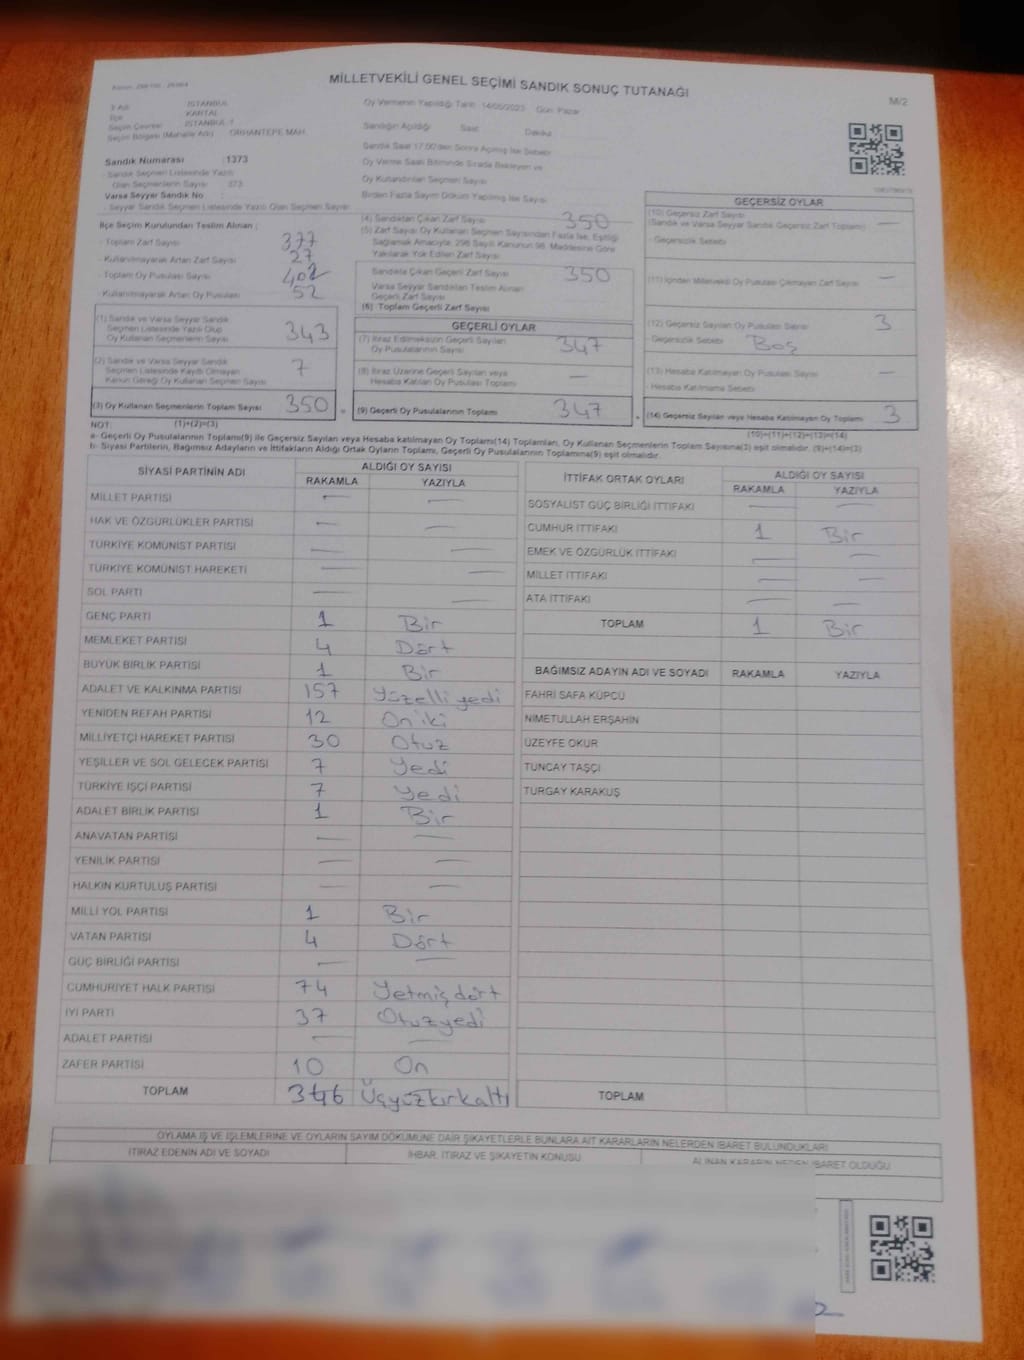 MİLLETVEKİLİ GENEL SEÇİMİ SANDIK SONUÇ TUTANAĞI
M/2
İli Adı : İSTANBUL
İlçe : KARTAL
Seçim Çevresi : İSTANBUL 1
Seçim Bölgesi (Mahalle Adı) : ORHANTEPE MAH.
Sandık Numarası : 1373
- Sandık Seçmen Listesinde Yazılı
Olan Seçmenlerin Sayısı : 373
Varsa Seyyar Sandık No
- Seyyar Sandık Seçmen Listesinde Yazılı Olan Seçmen Sayısı
Oy Vermenin Yapıldığı Tarih: 14/05/2023 Gün: Pazar
Sandığın Açıldığı Saat: Dakika:
Sandık Saat 17.00'den Sonra Açılmış İse Sebebi
Oy Verme Saati Bitiminde Sırada Bekleyen ve
Oy Kullandırılan Seçmen Sayısı
Birden Fazla Sayım Döküm Yapılmış İse Sayısı
İlçe Seçim Kurulundan Teslim Alınan :
- Toplam Zarf Sayısı 377
- Kullanılmayarak Artan Zarf Sayısı 27
- Toplam Oy Pusulası Sayısı 402
- Kullanılmayarak Artan Oy Pusulası 52
(1) Sandık ve Varsa Seyyar Sandık
Seçmen Listesinde Yazılı Olup
Oy Kullanan Seçmenlerin Sayısı 343
(2) Sandık ve Varsa Seyyar Sandık
Seçmen Listesinde Kaydı Olmayan
Kanun Gereği Oy Kullanan Seçmen Sayısı 7
(3) Oy Kullanan Seçmenlerin Toplam Sayısı 350
(4) Sandıktan Çıkan Zarf Sayısı 350
(5) Zarf Sayısı Oy Kullanan Seçmen Sayısından Fazla İse, Eşitliği
Sağlamak Amacıyla, 298 Sayılı Kanunun 98. Maddesine Göre
Yakılarak Yok Edilen Zarf Sayısı
Sandıkta Çıkan Geçerli Zarf Sayısı 350
Varsa Seyyar Sandıktan Teslim Alınan
Geçerli Zarf Sayısı
(6) Toplam Geçerli Zarf Sayısı
GEÇERLİ OYLAR
(7) İtiraz Edilmeksizin Geçerli Sayılan
Oy Pusulalarının Sayısı 347
(8) İtiraz Üzerine Geçerli Sayılan veya
Hesaba Katılan Oy Pusulası Toplamı —
(9) Geçerli Oy Pusulalarının Toplamı 347
GEÇERSİZ OYLAR
(10) Geçersiz Zarf Sayısı
(Sandık ve Varsa Seyyar Sandık Geçersiz Zarf Toplamı) —
- Geçersizlik Sebebi
(11) İçinden Milletvekili Oy Pusulası Çıkmayan Zarf Sayısı —
(12) Geçersiz Sayılan Oy Pusulası Sayısı 3
- Geçersizlik Sebebi Boş
(13) Hesaba Katılmayan Oy Pusulası Sayısı —
- Hesaba Katılmama Sebebi
(14) Geçersiz Sayılan veya Hesaba Katılmayan Oy Toplamı 3
NOT: (1)+(2)=(3) (10)+(11)+(12)+(13)=(14)
a- Geçerli Oy Pusulalarının Toplamı(9) ile Geçersiz Sayılan veya Hesaba katılmayan Oy Toplamı(14) Toplamları, Oy Kullanan Seçmenlerin Toplam Sayısına(3) eşit olmalıdır. (9)+(14)=(3)
b- Siyasi Partilerin, Bağımsız Adayların ve İttifakların Aldığı Ortak Oyların Toplamı, Geçerli Oy Pusulalarının Toplamına(9) eşit olmalıdır.
SİYASİ PARTİNİN ADI ALDIĞI OY SAYISI
RAKAMLA YAZIYLA
MİLLET PARTİSİ — —
HAK VE ÖZGÜRLÜKLER PARTİSİ — —
TÜRKİYE KOMÜNİST PARTİSİ — —
TÜRKİYE KOMÜNİST HAREKETİ — —
SOL PARTİ — —
GENÇ PARTİ 1 Bir
MEMLEKET PARTİSİ 4 Dört
BÜYÜK BİRLİK PARTİSİ 1 Bir
ADALET VE KALKINMA PARTİSİ 157 Yüzelli yedi
YENİDEN REFAH PARTİSİ 12 On iki
MİLLİYETÇİ HAREKET PARTİSİ 30 Otuz
YEŞİLLER VE SOL GELECEK PARTİSİ 7 Yedi
TÜRKİYE İŞÇİ PARTİSİ 7 Yedi
ADALET BİRLİK PARTİSİ 1 Bir
ANAVATAN PARTİSİ — —
YENİLİK PARTİSİ — —
HALKIN KURTULUŞ PARTİSİ — —
MİLLİ YOL PARTİSİ 1 Bir
VATAN PARTİSİ 4 Dört
GÜÇ BİRLİĞİ PARTİSİ — —
CUMHURİYET HALK PARTİSİ 74 Yetmiş dört
İYİ PARTİ 37 Otuzyedi
ADALET PARTİSİ — —
ZAFER PARTİSİ 10 On
TOPLAM 346 Üçyüzkırkaltı
İTTİFAK ORTAK OYLARI ALDIĞI OY SAYISI
RAKAMLA YAZIYLA
SOSYALİST GÜÇ BİRLİĞİ İTTİFAKI — —
CUMHUR İTTİFAKI 1 Bir
EMEK VE ÖZGÜRLÜK İTTİFAKI — —
MİLLET İTTİFAKI — —
ATA İTTİFAKI — —
TOPLAM 1 Bir
BAĞIMSIZ ADAYIN ADI VE SOYADI RAKAMLA YAZIYLA
FAHRİ SAFA KÜPCÜ
NİMETULLAH ERŞAHİN
ÜZEYFE OKUR
TUNCAY TAŞÇI
TURGAY KARAKUŞ
TOPLAM
OYLAMA İŞ VE İŞLEMLERİNE VE OYLARIN SAYIM DÖKÜMÜNE DAİR ŞİKAYETLERLE BUNLARA AİT KARARLARIN NELERDEN İBARET BULUNDUKLARI
İTİRAZ EDENİN ADI VE SOYADI İHBAR, İTİRAZ VE ŞİKAYETİN KONUSU ALINAN KARARIN NEDEN İBARET OLDUĞU